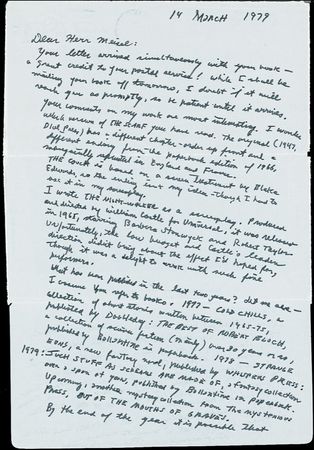 14 March 1979
Dear Herr Meisel:
Your letter arrived simultaneously with your book —
a great credit to your postal service! While I shall be
mailing your book off tomorrow, I doubt if it will
reach you as promptly, so be patient until it arrives.
Your comments on my work are most interesting. I wonder
which version of THE SCARF you have read. The original (1947,
Dial Press) has a different chapter-order up front and a
different ending from the paperback edition of 1966,
subsequently reprinted in England and France.
THE COUCH is based on a screen treatment by Blake
Edwards, so the ending isn't my idea — though I had to
use it in my screenplay.
I wrote THE NIGHT WALKER as a screenplay. Produced
and directed by William Castle for Universal, it was released
in 1965, starring Barbara Stanwyck and Robert Taylor.
Unfortunately, the low budget and Castle's leaden
direction didn't bring about the effect I'd hoped for,
though it was a delight to work with such fine
performers.
What has been published in the last two years? Let me see —
I assume you refer to books. 1977 — COLD CHILLS, a
collection of short stories written between 1965-75,
published by Doubleday: THE BEST OF ROBERT BLOCH,
a collection of science fiction (mainly) over 30 years or so,
published by Ballantine in paperback. 1978 — STRANGE
EONS, a new fantasy novel, published by WHISPERS PRESS:
1979: SUCH STUFF AS SCREAMS ARE MADE OF, a fantasy collection
over a span of years, published by Ballantine in paperback.
Upcoming, another mystery collection from The Mysterious
Press, OUT OF THE MOUTHS OF GRAVES.
By the end of the year it is possible that